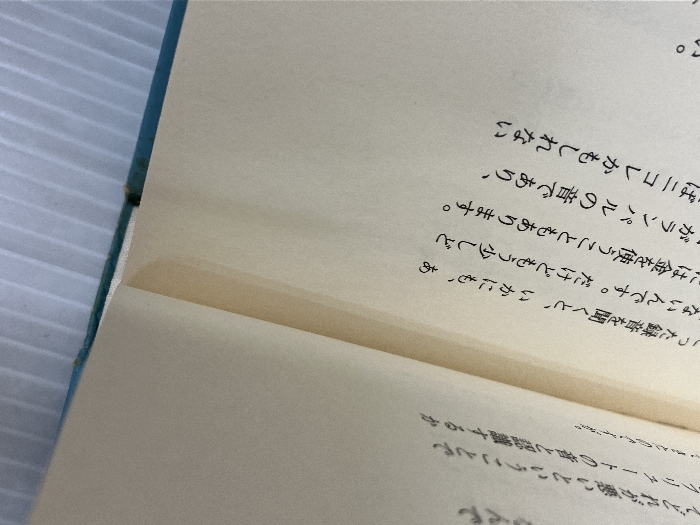 なんで
どれが悪いということで
リュートの音と認識するか
った録音を聞くと、いかにも、あ
ないんです。だけどもう少しど
には金を使うこともあります。
がランパルの音であり、
ばニコレかもしれない
い。